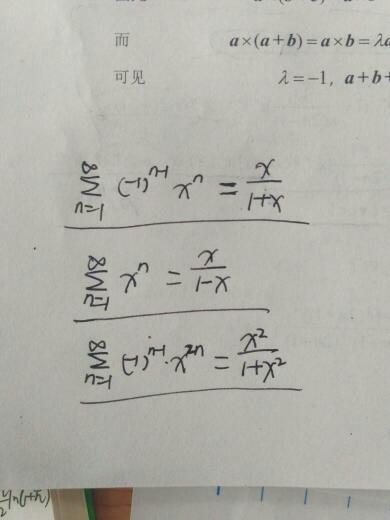 而 a×(a+b)=a×b=λa
可见 λ=-1, a+b+
∞∑n=1 (-1)^{n-1} x^n = x/(1+x)
∞∑n=1 x^n = x/(1-x)
∞∑n=1 (-1)^{n-1}·x^{2n} = x²/(1+x²)